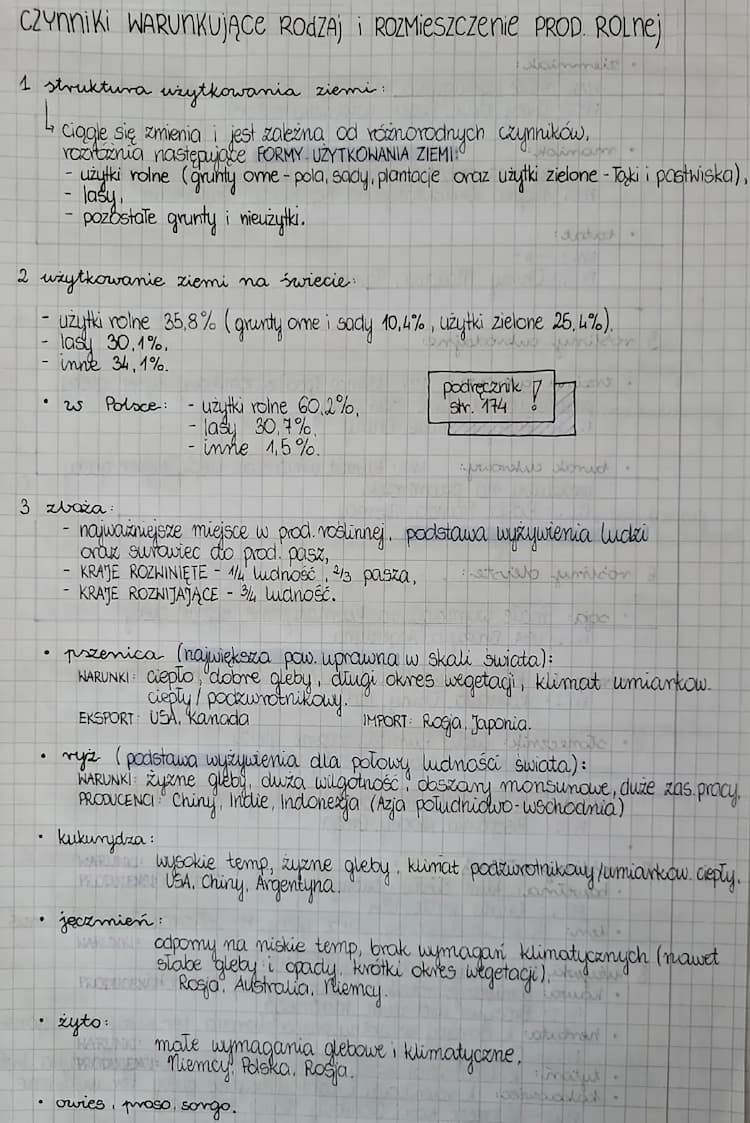 CZYNNIKI WARUNKUJĄCE RODZAJ i ROZMIESZCZENIE PROD. ROLNEJ
1 struktura użytkowania ziemi:
↳ ciągle się zmienia i jest zależna od różnorodnych czynników,
rozróżnia następujące FORMY UŻYTKOWANIA ZIEMI:
- użytki rolne (grunty orne - pola, sady, plantacje oraz użytki zielone - łąki i pastwiska),
- lasy,
- pozostałe grunty i nieużytki.
2 użytkowanie ziemi na świecie:
- użytki rolne 35,8% (grunty orne i sady 10,4%, użytki zielone 25,4%),
- lasy 30,1%,
- inne 34,1%.
• w Polsce: - użytki rolne 60,2%,
- lasy 30,7%,
- inne 1,5%.
podręcznik !
str. 174
3 zboża:
- najważniejsze miejsce w prod. roślinnej, podstawa wyżywienia ludzi
oraz surowiec do prod. pasz,
- KRAJE ROZWINIĘTE - 1/4 ludność, 2/3 pasza,
- KRAJE ROZWIJAJĄCE - 3/4 ludność.
• pszenica (największa pow. uprawna w skali świata):
WARUNKI: ciepło, dobre gleby, długi okres wegetacji, klimat umiarkow.
ciepły / podzwrotnikowy.
EKSPORT: USA, Kanada IMPORT: Rosja, Japonia.
• ryż (podstawa wyżywienia dla połowy ludności świata):
WARUNKI: żyzne gleby, duża wilgotność, obszary monsunowe, duże zas. pracy,
PRODUCENCI: Chiny, Indie, Indonezja (Azja południowo-wschodnia)
• kukurydza:
wysokie temp, żyzne gleby, klimat podzwrotnikowy/umiarkow. ciepły.
USA, Chiny, Argentyna.
• jęczmień:
odporny na niskie temp, brak wymagań klimatycznych (nawet
słabe gleby i opady, krótki okres wegetacji),
Rosja, Australia, Niemcy.
• żyto:
małe wymagania glebowe i klimatyczne,
Niemcy, Polska, Rosja.
• owies, proso, sorgo.